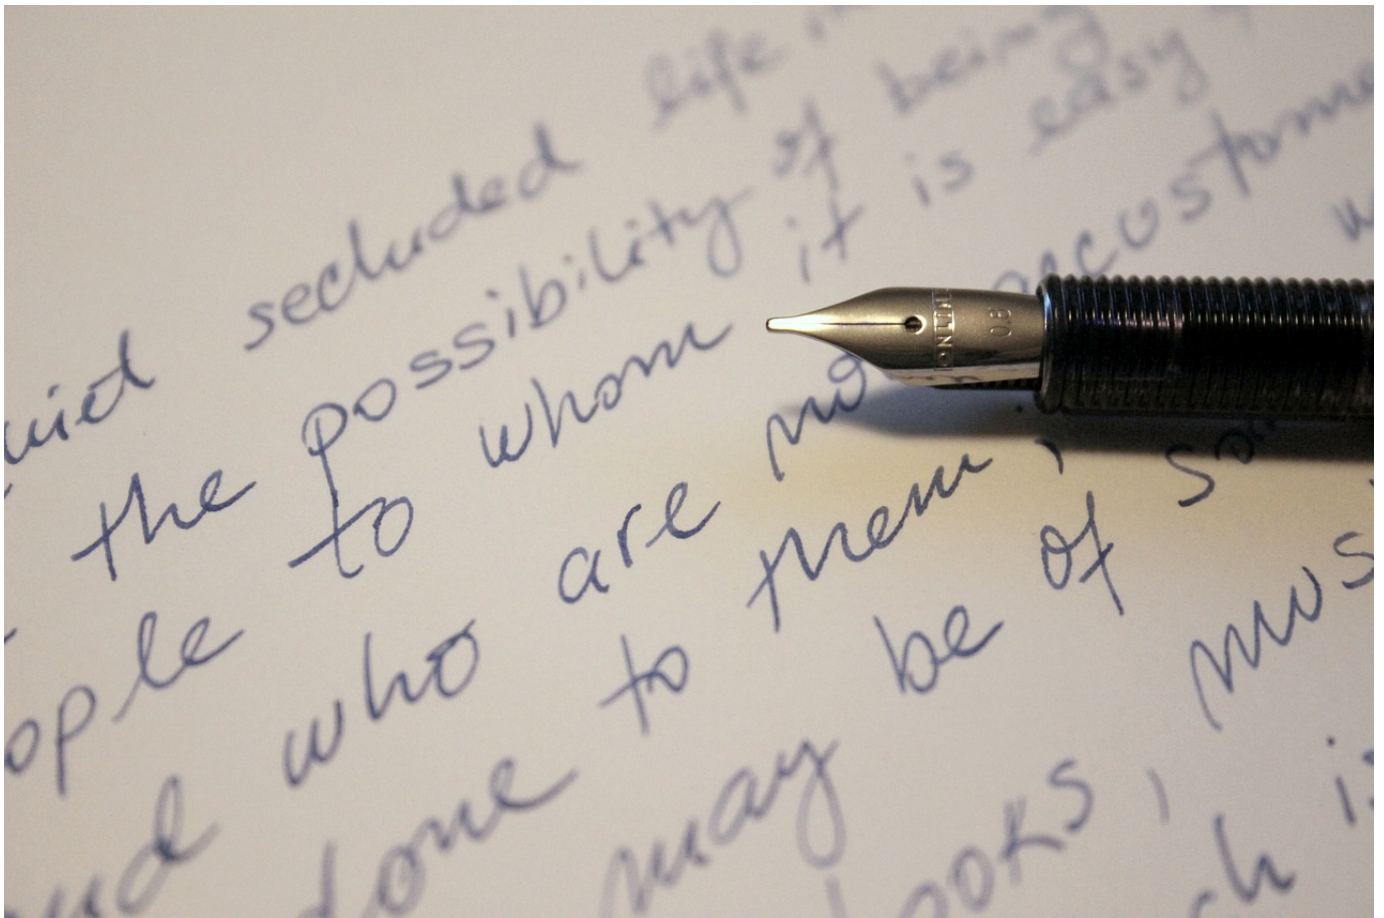 uiet secluded life
the possibility of being
ople to whom it is easy
nd who are no accustome
done to them;
may be of so
ooks, mus
ch is
0.8